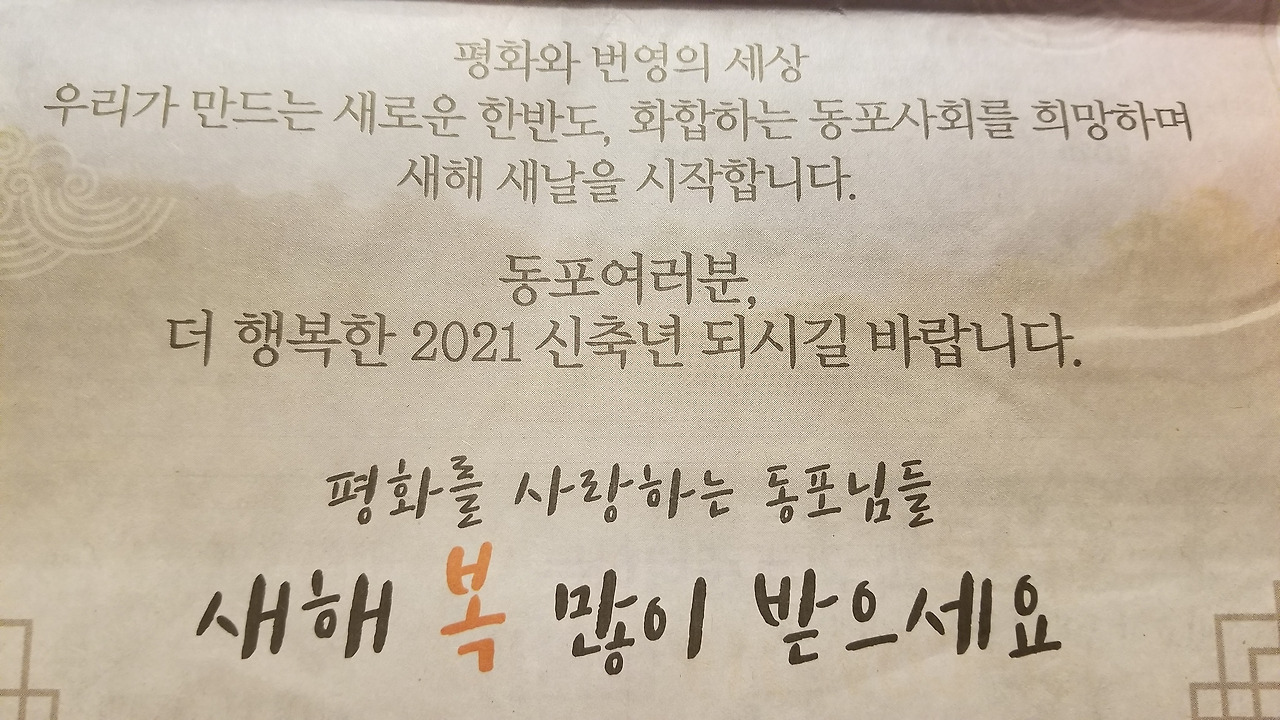 평화와 번영의 세상
우리가 만드는 새로운 한반도, 화합하는 동포사회를 희망하며
새해 새날을 시작합니다.
동포여러분,
더 행복한 2021 신축년 되시길 바랍니다.
평화를 사랑하는 동포님들
새해 복 많이 받으세요